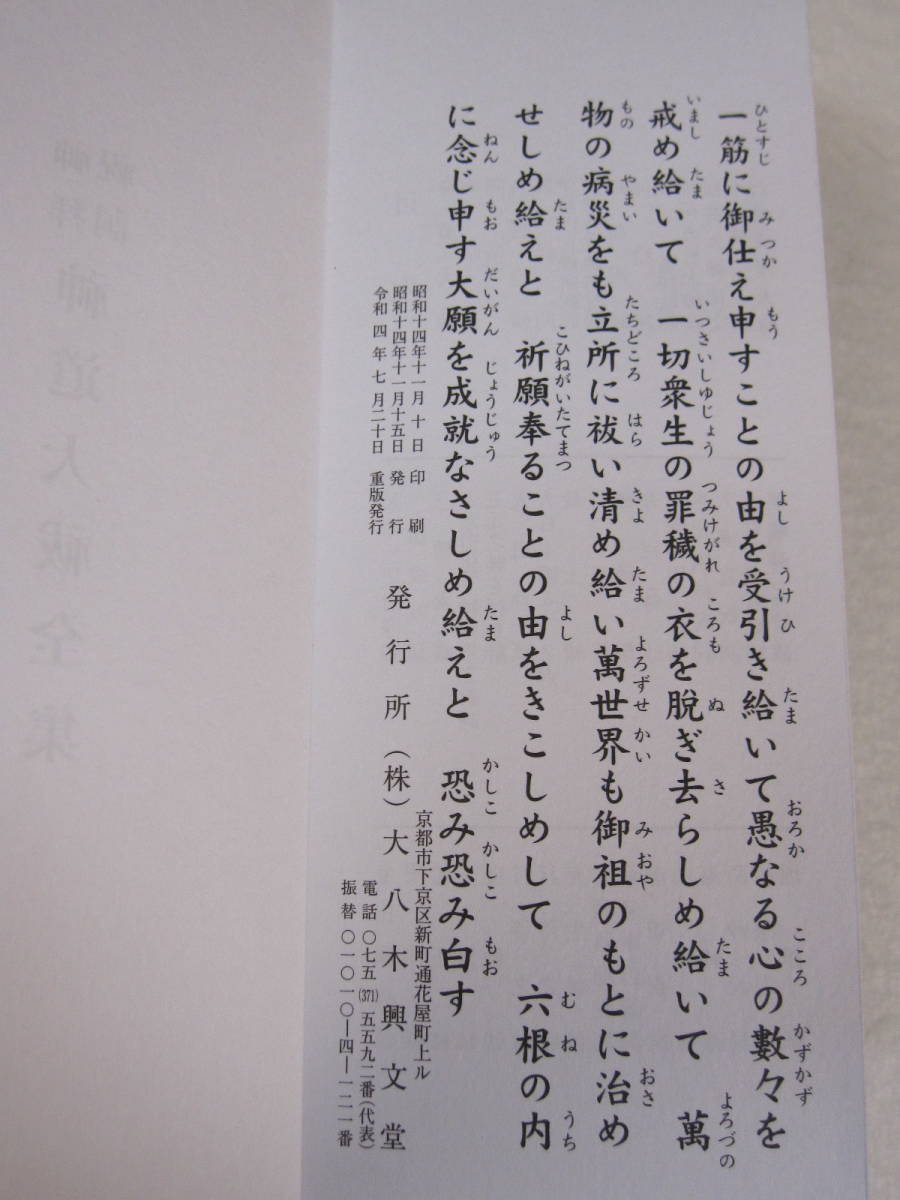 一筋に御仕え申すことの由を受引き給いて愚なる心の數々を
戒め給いて　一切衆生の罪穢の衣を脱ぎ去らしめ給いて　萬
物の病災をも立所に祓い清め給い萬世界も御祖のもとに治め
せしめ給えと　祈願奉ることの由をきこしめして　六根の内
に念じ申す大願を成就なさしめ給えと　恐み恐み白す
昭和十四年十一月十日　印刷
昭和十四年十一月十五日　発行
令和四年七月二十日　重版発行
京都市下京区新町通花屋町上ル
発行所　（株）大八木興文堂
電話〇七五(371)五五九二番（代表）
振替〇一〇一〇―四―一二一番